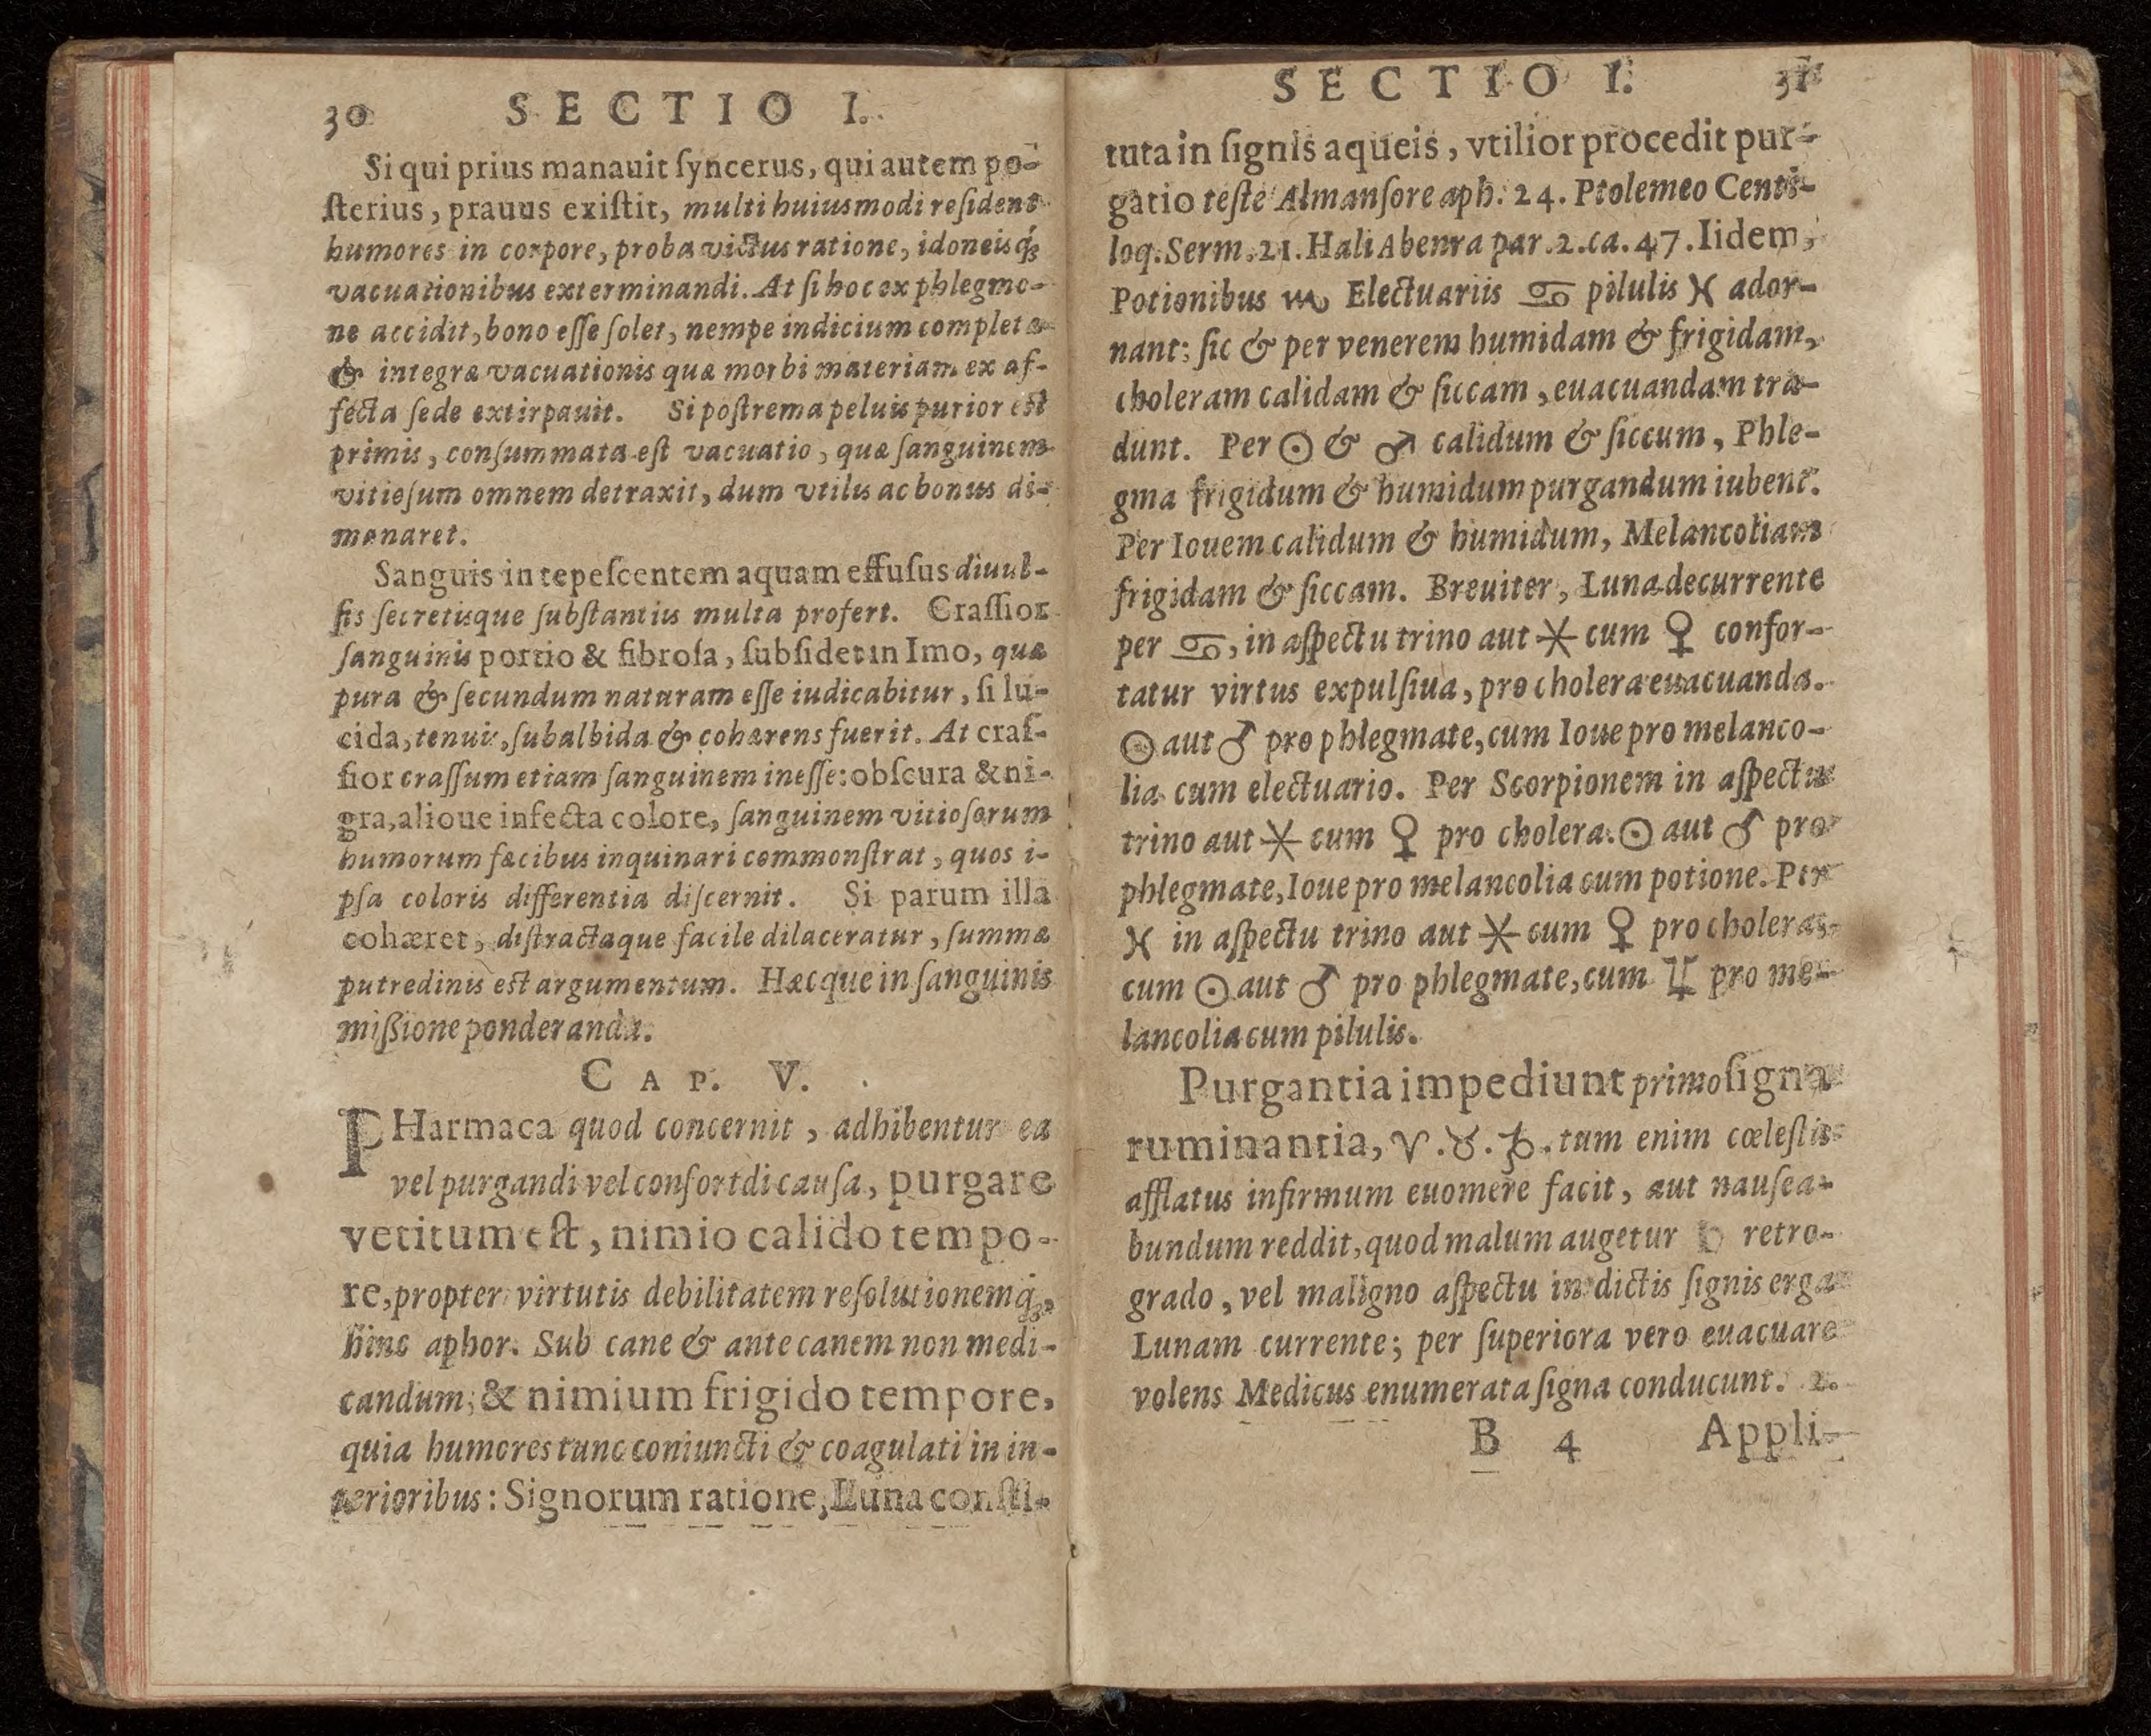 30 SECTIO I.
Si qui prius manauit ſyncerus, qui autem po-
ſterius, prauus exiſtit, multi huiusmodi reſident
humores in corpore, proba victus ratione, idoneisq́;
vacuationibus exterminandi. At ſi hoc ex phlegmo-
ne accidit, bono eſſe ſolet, nempe indicium completæ
& integræ vacuationis quæ morbi materiam ex af-
fecta ſede extirpauit. Si poſtrema peluis purior eſt
primis, conſummata eſt vacuatio, quæ ſanguinem
vitioſum omnem detraxit, dum vtilis ac bonus di-
manaret.
Sanguis in tepeſcentem aquam effuſus diuul-
ſis ſecretisque ſubſtantiis multa profert. Craſſior
ſanguinis portio & fibroſa, ſubſidet in Imo, quæ
pura & ſecundum naturam eſſe iudicabitur, ſi lu-
cida, tenuis, ſubalbida & cohærens fuerit. At craſ-
ſior craſſum etiam ſanguinem ineſſe: obſcura & ni-
gra, alioue infecta colore, ſanguinem vitioſorum
humorum fæcibus inquinari commonſtrat, quos i-
pſa coloris differentia diſcernit. Si parum illa
cohæret, diſtractaque facile dilaceratur, ſummæ
putredinis eſt argumentum. Hæcque in ſanguinis
miſſione ponderanda.
CAP. V.
PHarmaca quod concernit, adhibentur ea
vel purgandi vel confortdi cauſa, purgare
vetitum eſt, nimio calido tempo-
re, propter virtutis debilitatem reſolutionemq́;,
hinc aphor. Sub cane & ante canem non medi-
candum; & nimium frigido tempore,
quia humores tunc coniuncti & coagulati in in-
terioribus: Signorum ratione, Luna conſti-
SECTIO I. 31
tuta in ſignis aqueis, vtilior procedit pur-
gatio teſte Almanſore aph. 24. Ptolemeo Centi-
loq. Serm. 21. Hali Abenra par. 2. ca. 47. Iidem,
Potionibus ♏ Electuariis ♋ pilulis ♓ ador-
nant: ſic & per venerem humidam & frigidam,
choleram calidam & ſiccam, euacuandam tra-
dunt. Per ☉ & ♂ calidum & ſiccum, Phle-
gma frigidum & humidum purgandum iubent.
Per Iouem calidum & humidum, Melancoliam
frigidam & ſiccam. Breuiter, Luna decurrente
per ♋, in aſpectu trino aut ⚹ cum ♀ confor-
tatur virtus expulſiua, pro cholera euacuanda.
☉ aut ♂ pro phlegmate, cum Ioue pro melanco-
lia cum electuario. Per Scorpionem in aſpectu
trino aut ⚹ cum ♀ pro cholera. ☉ aut ♂ pro
phlegmate, Ioue pro melancolia cum potione. Per
♓ in aſpectu trino aut ⚹ cum ♀ pro cholera,
cum ☉ aut ♂ pro phlegmate, cum ♃ pro me-
lancolia cum pilulis.
Purgantia impediunt primo ſigna
ruminantia, ♈. ♉. ♑. tum enim cœleſtis
afflatus infirmum euomere facit, aut nauſea-
bundum reddit, quod malum augetur ♄ retro-
grado, vel maligno aſpectu in dictis ſignis erga
Lunam currente; per ſuperiora vero euacuare
volens Medicus enumerata ſigna conducunt. 2.
B 4 Appli-